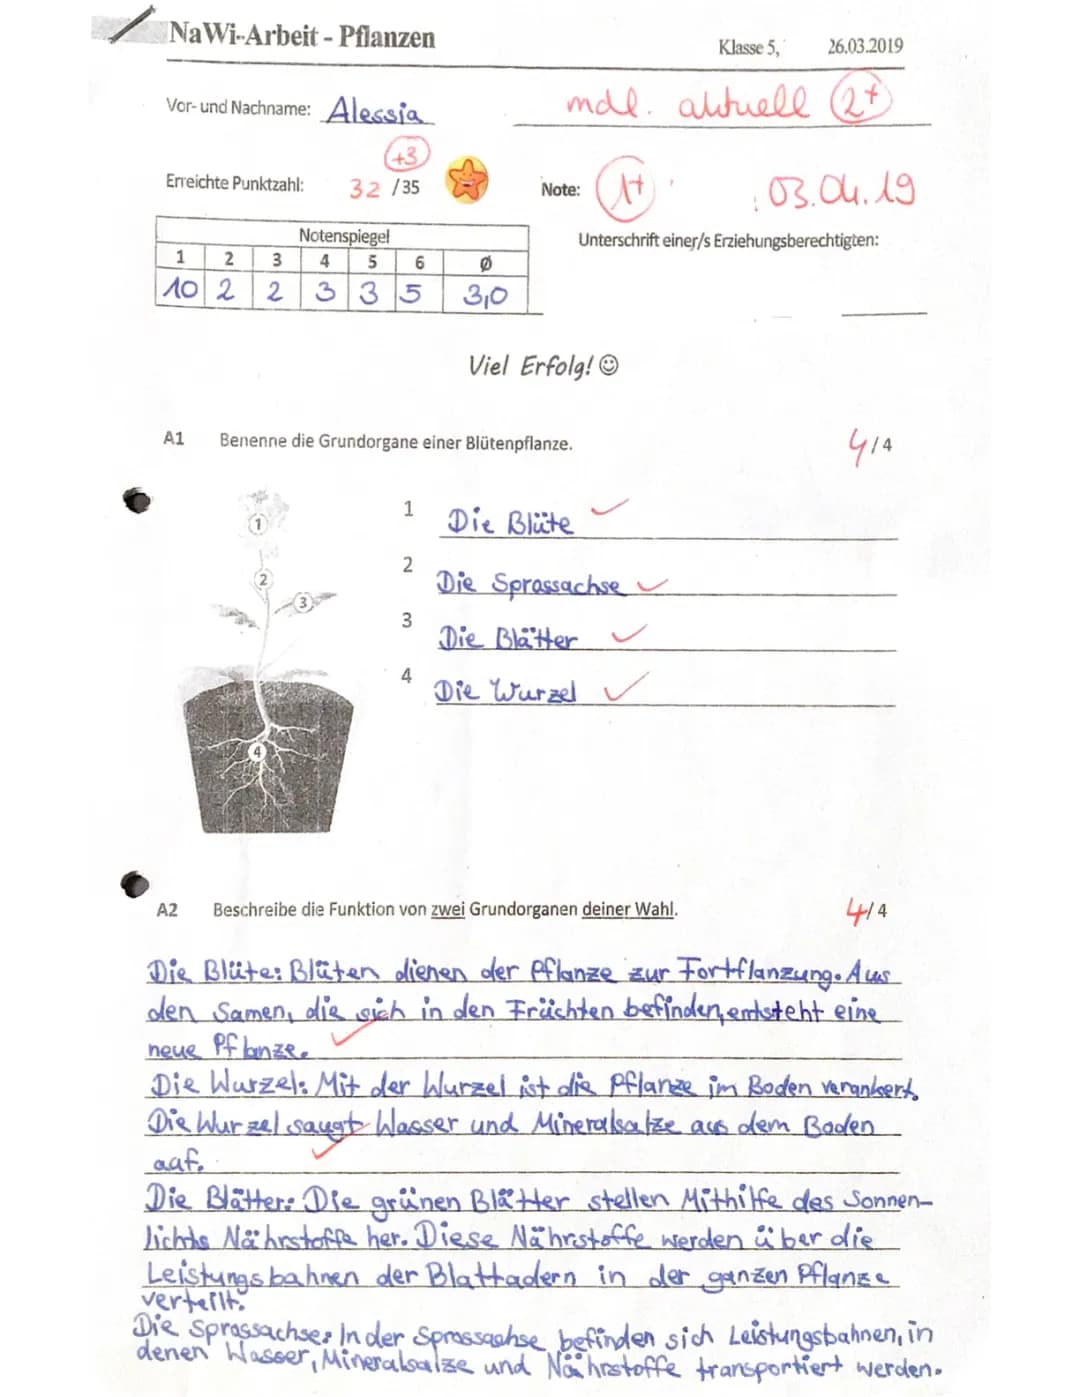 NaWi-Arbeit - Pflanzen
Klasse 5, 26.03.2019
Vor- und Nachname: Alessia
mdl. aktuell 2+
+3
Erreichte Punktzahl: 32 /35
Note: 1+
03.04.19
Notenspiegel
Unterschrift einer/s Erziehungsberechtigten:
1 2 3 4 5 6 Ø
10 2 2 3 3 5 3,0
Viel Erfolg! ☺
A1 Benenne die Grundorgane einer Blütenpflanze. 4/4
1 Die Blüte
2 Die Sprossachse
3 Die Blätter
4 Die Wurzel
1
2
3
4
A2 Beschreibe die Funktion von zwei Grundorganen deiner Wahl. 4/4
Die Blüte: Blüten dienen der Pflanze zur Fortflanzung. Aus
den Samen, die sich in den Früchten befinden, entsteht eine
neue Pflanze.
Die Wurzel: Mit der Wurzel ist die Pflanze im Boden verankert.
Die Wurzel saugt Wasser und Mineralsalze aus dem Boden
auf.
Die Blätter: Die grünen Blätter stellen Mithilfe des Sonnen-
lichts Nährstoffe her. Diese Nährstoffe werden über die
Leistungsbahnen der Blattadern in der ganzen Pflanze
verteilt.
Die Sprossachse: In der Sprossachse befinden sich Leistungsbahnen, in
denen Wasser, Mineralsalze und Nährstoffe transportiert werden.